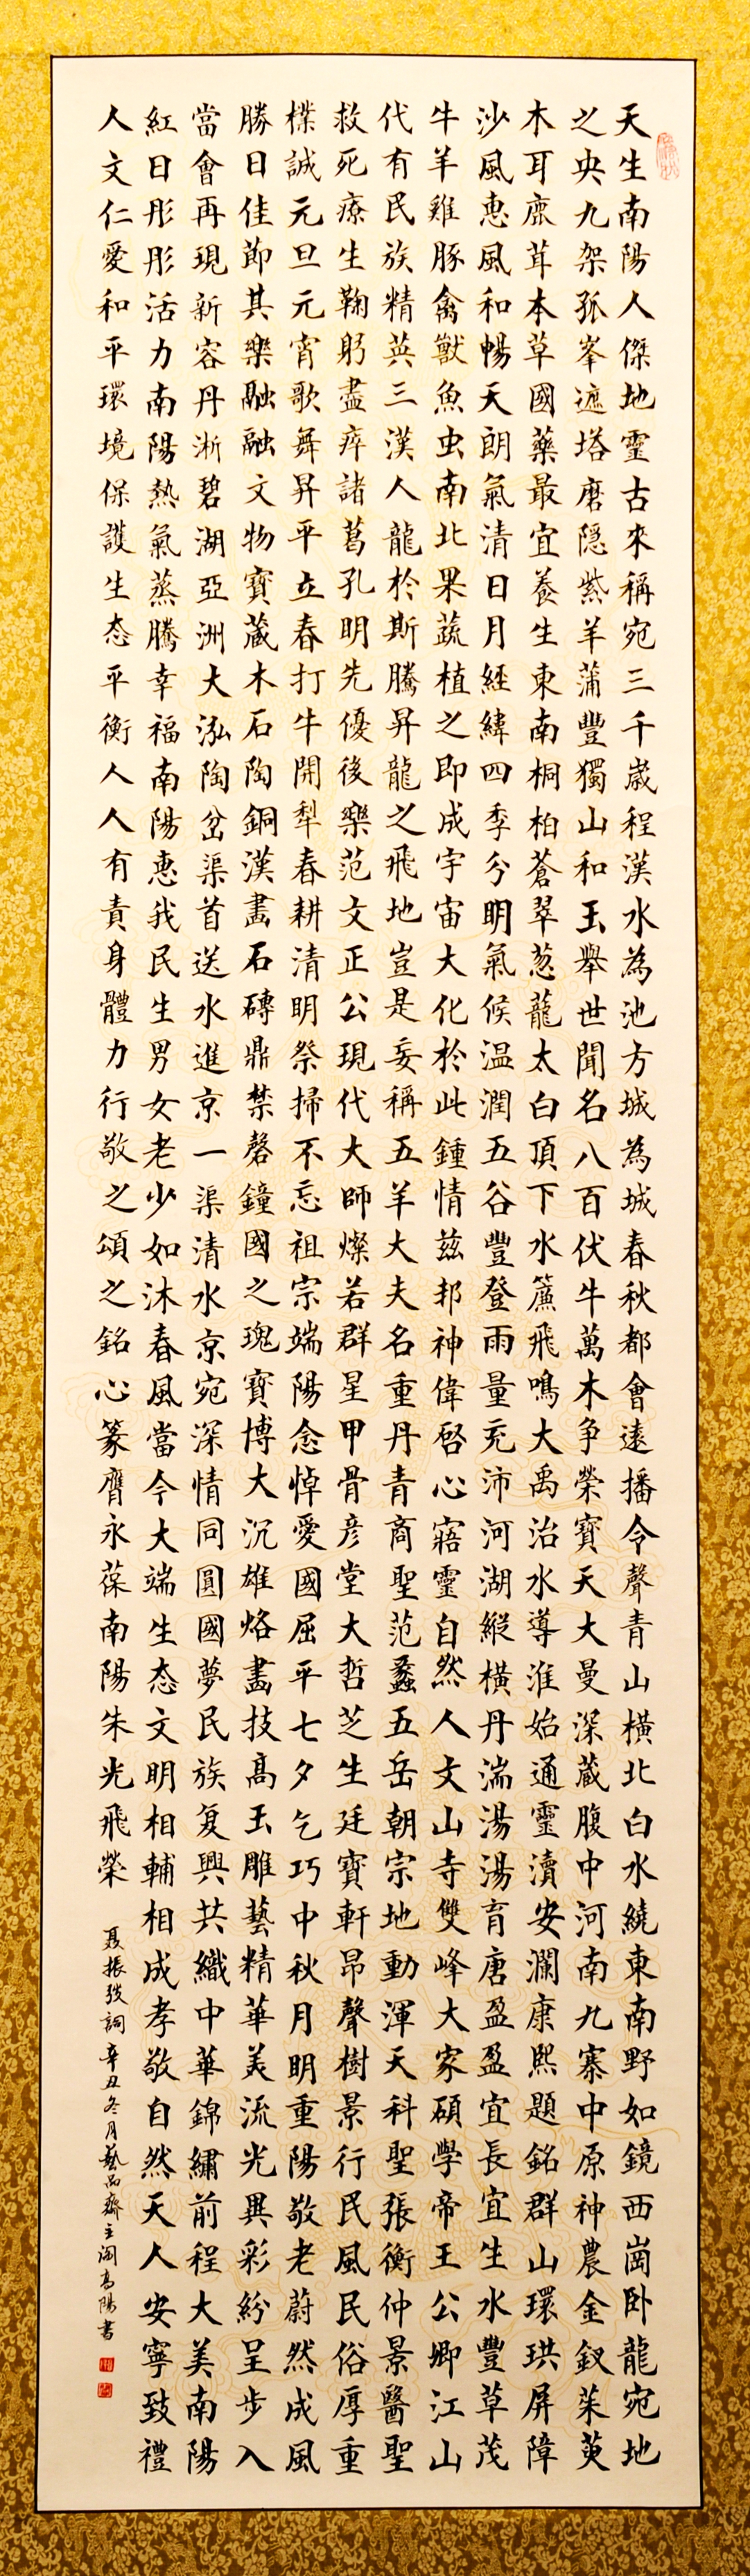 天生南陽人傑地靈古來稱宛三千歲程漢水為池方城為城春秋都會遠播令聲青山橫北白水繞東南野如鏡西崗卧龍宛地
之央九架孤峯遮塔磨隱紫羊蒲豐獨山和玉舉世聞名八百伏牛萬木争榮寶天大曼深藏腹中河南九寨中原神農金釵茱萸
木耳鹿茸本草國藥最宜養生東南桐柏蒼翠葱蘢太白頂下水簾飛鳴大禹治水導淮始通靈瀆安瀾康熙題銘群山環珙屏障
沙風惠風和暢天朗氣清日月經緯四季分明氣候温潤五谷豐登雨量充沛河湖縱橫丹湍湯湯育唐盈盈宜長宜生水豐草茂
牛羊雞豚禽獸魚虫南北果蔬植之即成宇宙大化於此鍾情兹邦神偉啓心寤靈自然人文山寺雙峰大家碩學帝王公卿江山
代有民族精英三漢人龍於斯騰昇龍之飛地豈是妄稱五羊大夫名重丹青商聖范蠡五岳朝宗地動渾天科聖張衡仲景醫聖
救死療生鞠躬盡瘁諸葛孔明先優後樂范文正公現代大師燦若群星甲骨彦堂大哲芝生廷寶軒昂聲樹景行民風民俗厚重
樸誠元旦元宵歌舞昇平立春打牛開犁春耕清明祭掃不忘祖宗端陽念悼愛國屈平七夕乞巧中秋月明重陽敬老蔚然成風
勝日佳節其樂融融文物寶藏木石陶銅漢畫石磚鼎禁磬鐘國之瑰寶博大沉雄烙畫技高玉雕藝精華美流光異彩紛呈步入
當會再現新容丹淅碧湖亞洲大泓陶岔渠首送水進京一渠清水京宛深情同圓國夢民族复興共織中華錦繡前程大美南陽
紅日彤彤活力南陽熱氣蒸騰幸福南陽惠我民生男女老少如沐春風當今大端生态文明相輔相成孝敬自然天人安寧致禮
人文仁愛和平環境保護生态平衡人人有責身體力行敬之頌之銘心篆膺永葆南陽朱光飛榮
聂振弢詞辛丑冬月藝品齋主闫高陽書